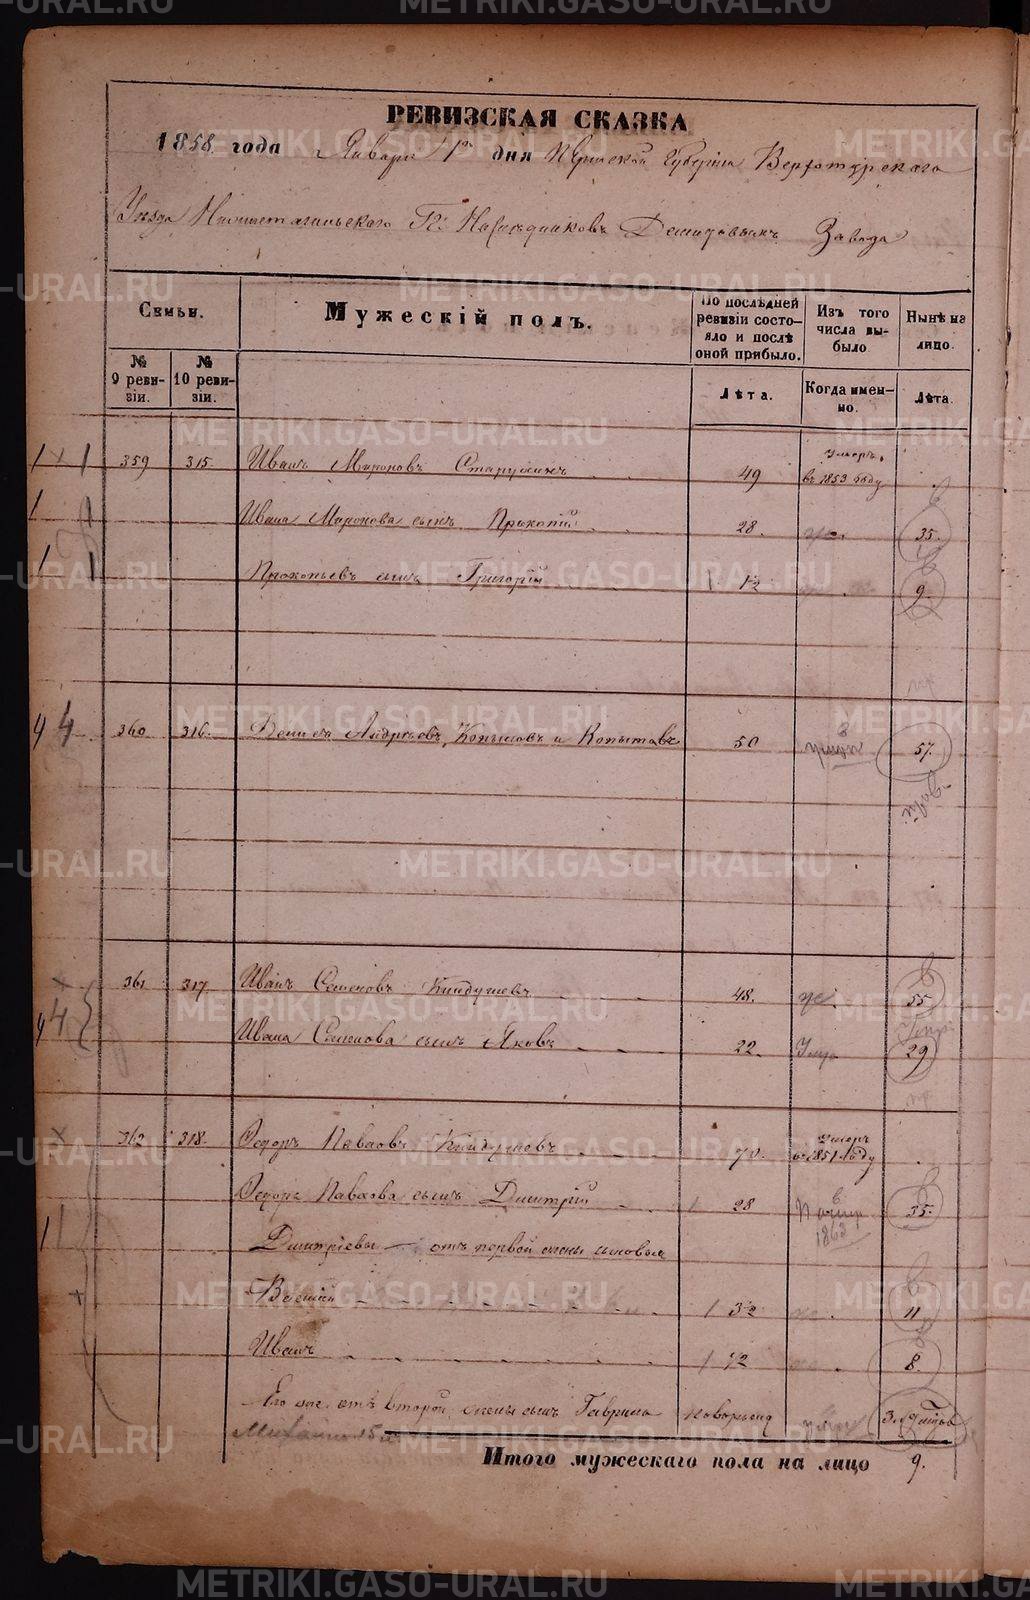 РЕВИЗСКАЯ СКАЗКА
1858 года Января 1го дня Пермской Губернiи Верхотурскаго
Уѣзда Нижнетагильскаго Гг. Наслѣдниковъ Демидовыхъ Завода
Семьи.
Мужескiй полъ.
По послѣдней ревизiи состояло и послѣ оной прибыло.
Изъ того числа выбыло
Нынѣ на лицо.
№ 9 ревизiи.
№ 10 ревизiи.
Лѣта.
Когда именно.
Лѣта.
1 × 1 359 315. Иванъ Мироновъ 49 Умеръ въ 1853 году
1 Ивана Миронова сынъ Прокопiй 28 35.
1 1 Прокопьевъ сынъ Григорiй 1 1/2 9.
4 4 360 316. Андрѣевъ, Копысовъ и Копытовъ 50 57.
361 317. Иванъ Семеновъ Киндушевъ 48. 55
4 4 Ивана Семенова сынъ Яковъ 22. 29
362 318. Федоръ Павловъ Киндушевъ 70. Умеръ въ 1851 году
Федора Павлова сынъ Дмитрiй 28 35.
1863
Дмитрiевы отъ первой жены сыновья
Василiй 3 1/2 11
Иванъ 1/2 8.
Его же отъ второй жены сынъ Гаврила новорожд
Итого мужескаго пола на лицо 9.
METRIKI.GASO-URAL.RU